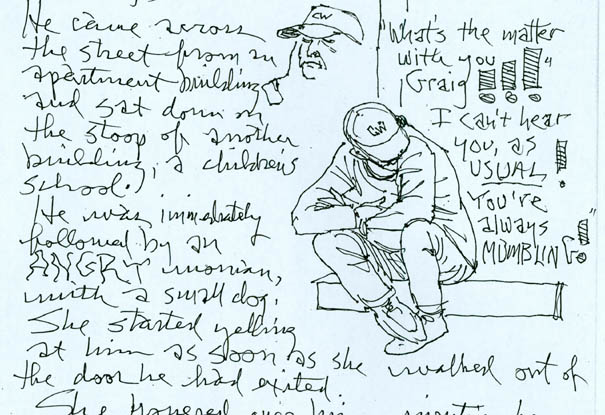 He came across
the street from an
apartment building
and sat down on
the stoop of another
building, a children's
school.
He was immediately
followed by an
ANGRY woman,
with a small dog.
She started yelling
at him as soon as she walked out of
the door he had exited.
She hovered over him
CW
CW
"What's the matter
with you
Graig !!!"
I can't hear
you, as
USUAL!
You're
always
MUMBLING!"